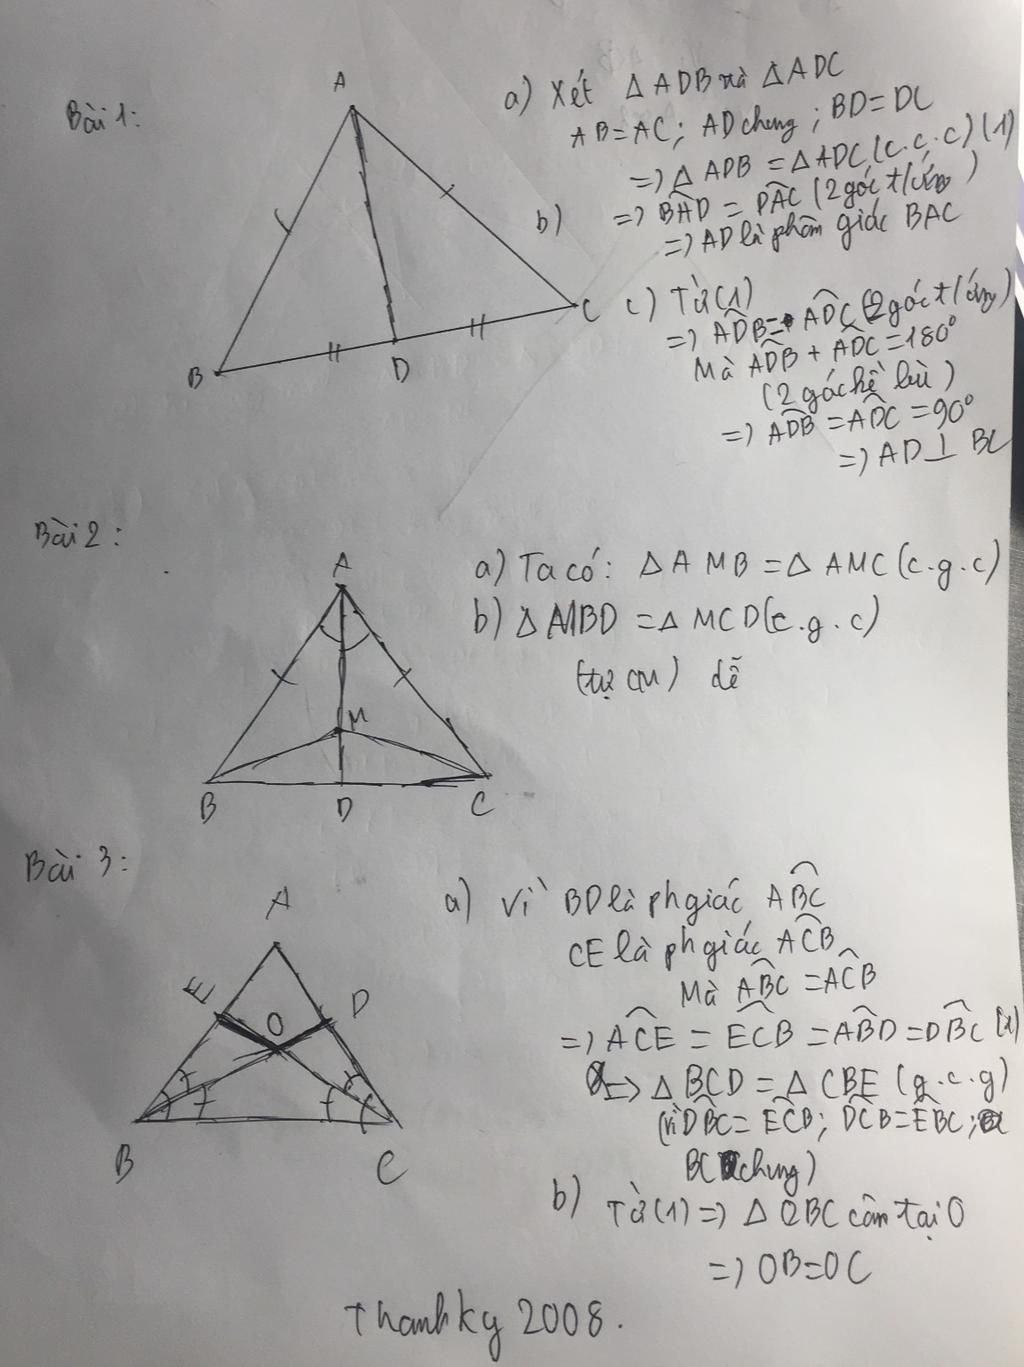 Bài 1:
A
B
D
C
a) Xét Δ ADB và Δ ADC
AB = AC; AD chung; BD = DC
=) Δ ADB = Δ ADC (c.c.c) (1)
b) =) BAD = DAC (2 góc t/ứng)
=) AD là phân giác BAC
c) Từ (1)
=) ADB = ADC (2 góc t/ứng)
Mà ADB + ADC = 180°
(2 góc kề bù)
=) ADB = ADC = 90°
=) AD ⊥ BC
Bài 2:
A
M
B
D
C
a) Ta có: Δ AMB = Δ AMC (c.g.c)
b) Δ MBD = Δ MCD (c.g.c)
(tự CM) dễ
Bài 3:
A
E
O
D
B
C
a) Vì BD là ph giác ABC
CE là ph giác ACB
Mà ABC = ACB
=) ACE = ECB = ABD = DBC (1)
=) Δ BCD = Δ CBE (g.c.g)
(vì DBC = ECB; DCB = EBC;
BC chung)
b) Từ (1) =) Δ OBC cân tại O
=) OB = OC
Thanhky 2008.